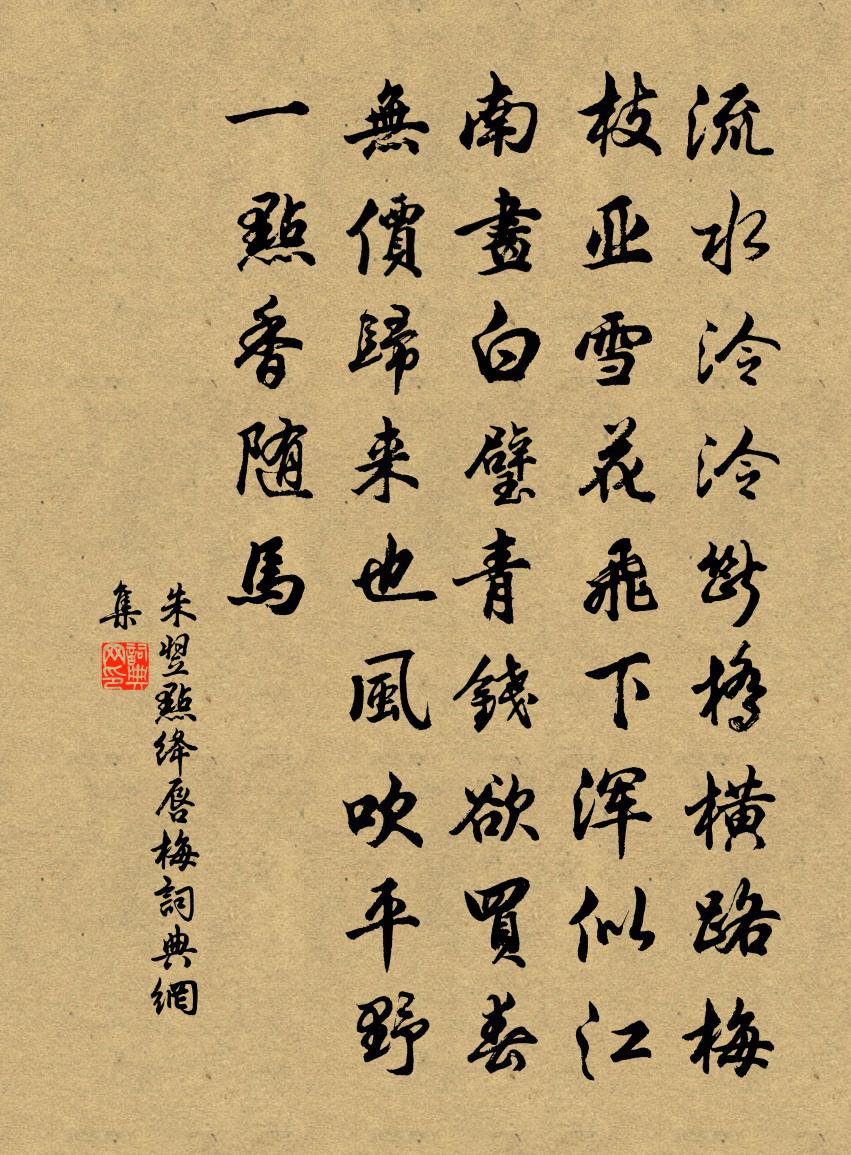 流水泠泠斷橋橫路梅
枝亚雪花飛下浑似江
南畫白璧青錢欲買春
無價歸来也風吹平野
一點香随馬
朱翌點绛唇梅詞典網
集
詞典
网印